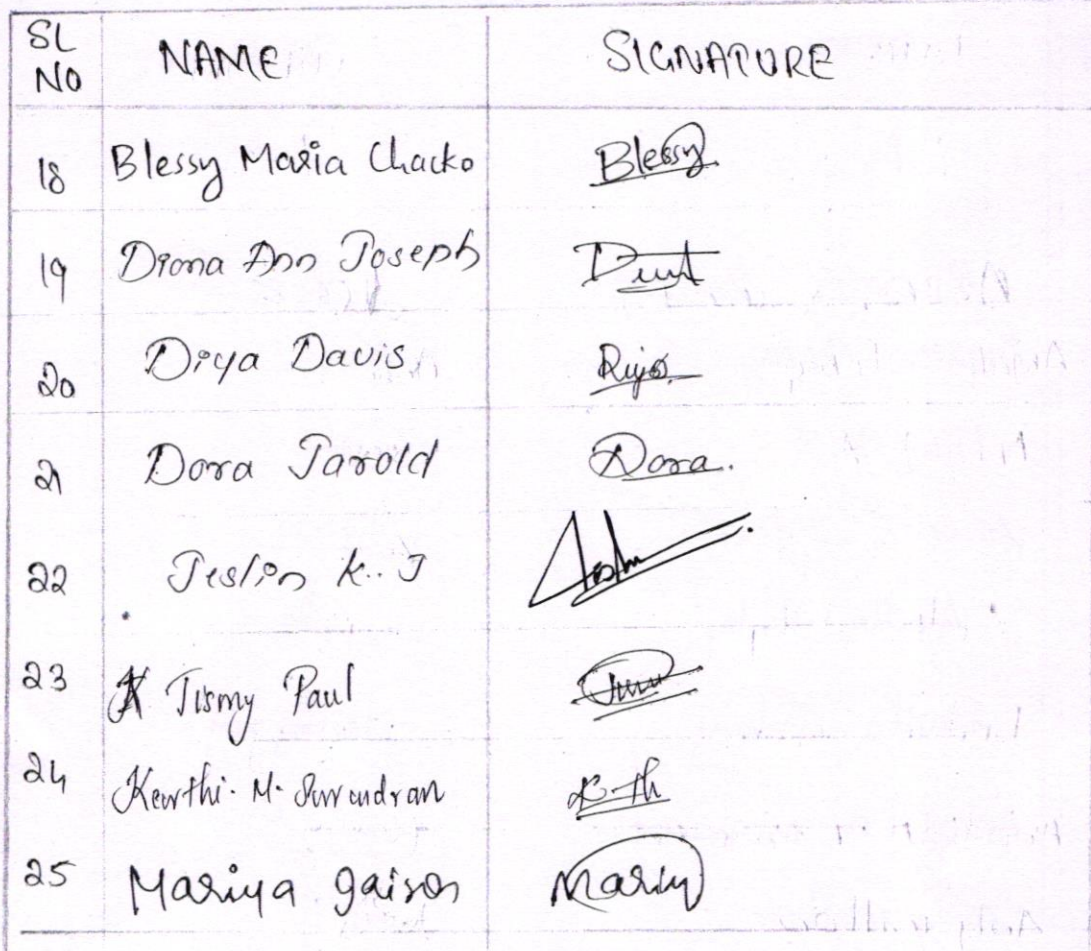 SL NO NAME SIGNATURE
18 Blessy Maria Chacko Blessy
19 Diona Ann Joseph
20 Diya Davis
21 Dora Jarold Dora.
22 Jeslin K. J
23 Jismy Paul
24 Keerthi. M. Surendran
25 Mariya Jaison Mariy